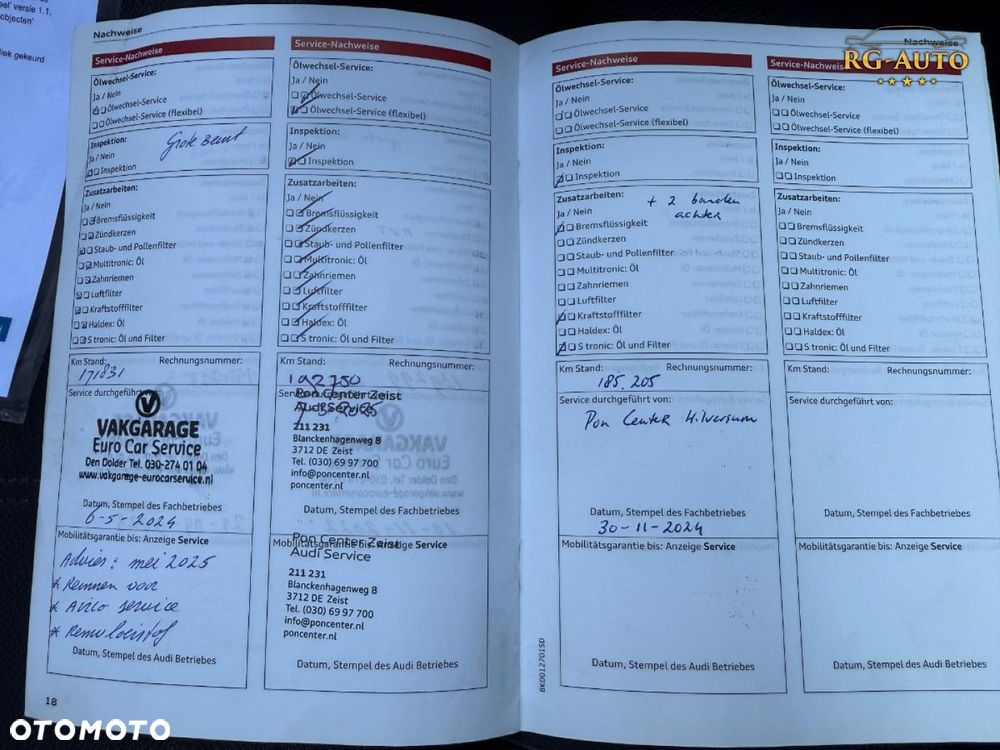 eel' versie 1.1.
objecten'
iek gekeurd
Nachweise
Service-Nachweise
Ölwechsel-Service:
Ja / Nein
Ölwechsel-Service
Ölwechsel-Service (flexibel)
Inspektion:
Grote beurt
Ja / Nein
Inspektion
Zusatzarbeiten:
Ja / Nein
Bremsflüssigkeit
Zündkerzen
Staub- und Pollenfilter
Multitronic: Öl
Zahnriemen
Luftfilter
Kraftstofffilter
Haldex: Öl
S tronic: Öl und Filter
Km Stand:
Rechnungsnummer:
171831
Service durchgeführt von:
VAKGARAGE
Euro Car Service
Den Dolder Tel. 030-274 01 04
www.vakgarage-eurocarservice.nl
Datum, Stempel des Fachbetriebes
6-5-2024
Mobilitätsgarantie bis: Anzeige Service
Advies: mei 2025
* Remmen voor
* Airco service
* Remvloeistof
Datum, Stempel des Audi Betriebes
18
Service-Nachweise
Ölwechsel-Service:
Ja / Nein
Ölwechsel-Service
Ölwechsel-Service (flexibel)
Inspektion:
Ja / Nein
Inspektion
Zusatzarbeiten:
Ja / Nein
Bremsflüssigkeit
Zündkerzen
Staub- und Pollenfilter
Multitronic: Öl
Zahnriemen
Luftfilter
Kraftstofffilter
Haldex: Öl
S tronic: Öl und Filter
Km Stand:
Rechnungsnummer:
192750
Pon Center Zeist
Audi Service
211 231
Blanckenhagenweg 8
3712 DE Zeist
Tel. (030) 69 97 700
info@poncenter.nl
poncenter.nl
Datum, Stempel des Fachbetriebes
Mobilitätsgarantie bis: Anzeige Service
Pon Center Zeist
Audi Service
211 231
Blanckenhagenweg 8
3712 DE Zeist
Tel. (030) 69 97 700
info@poncenter.nl
poncenter.nl
Datum, Stempel des Audi Betriebes
Service-Nachweise
Ölwechsel-Service:
Ja / Nein
Ölwechsel-Service
Ölwechsel-Service (flexibel)
Inspektion:
Ja / Nein
Inspektion
Zusatzarbeiten:
+ 2 banden
achter
Ja / Nein
Bremsflüssigkeit
Zündkerzen
Staub- und Pollenfilter
Multitronic: Öl
Zahnriemen
Luftfilter
Kraftstofffilter
Haldex: Öl
S tronic: Öl und Filter
Km Stand:
Rechnungsnummer:
185,205
Service durchgeführt von:
Pon Center Hilversum
Datum, Stempel des Fachbetriebes
30-11-2024
Mobilitätsgarantie bis: Anzeige Service
Datum, Stempel des Audi Betriebes
BK0012701SD
Nachweise
RG-AUTO
Service-Nachweise
Ölwechsel-Service:
Ja / Nein
Ölwechsel-Service
Ölwechsel-Service (flexibel)
Inspektion:
Ja / Nein
Inspektion
Zusatzarbeiten:
Ja / Nein
Bremsflüssigkeit
Zündkerzen
Staub- und Pollenfilter
Multitronic: Öl
Zahnriemen
Luftfilter
Kraftstofffilter
Haldex: Öl
S tronic: Öl und Filter
Km Stand:
Rechnungsnummer:
Service durchgeführt von:
Datum, Stempel des Fachbetriebes
Mobilitätsgarantie bis: Anzeige Service
Datum, Stempel des Audi Betriebes
OTOMOTO